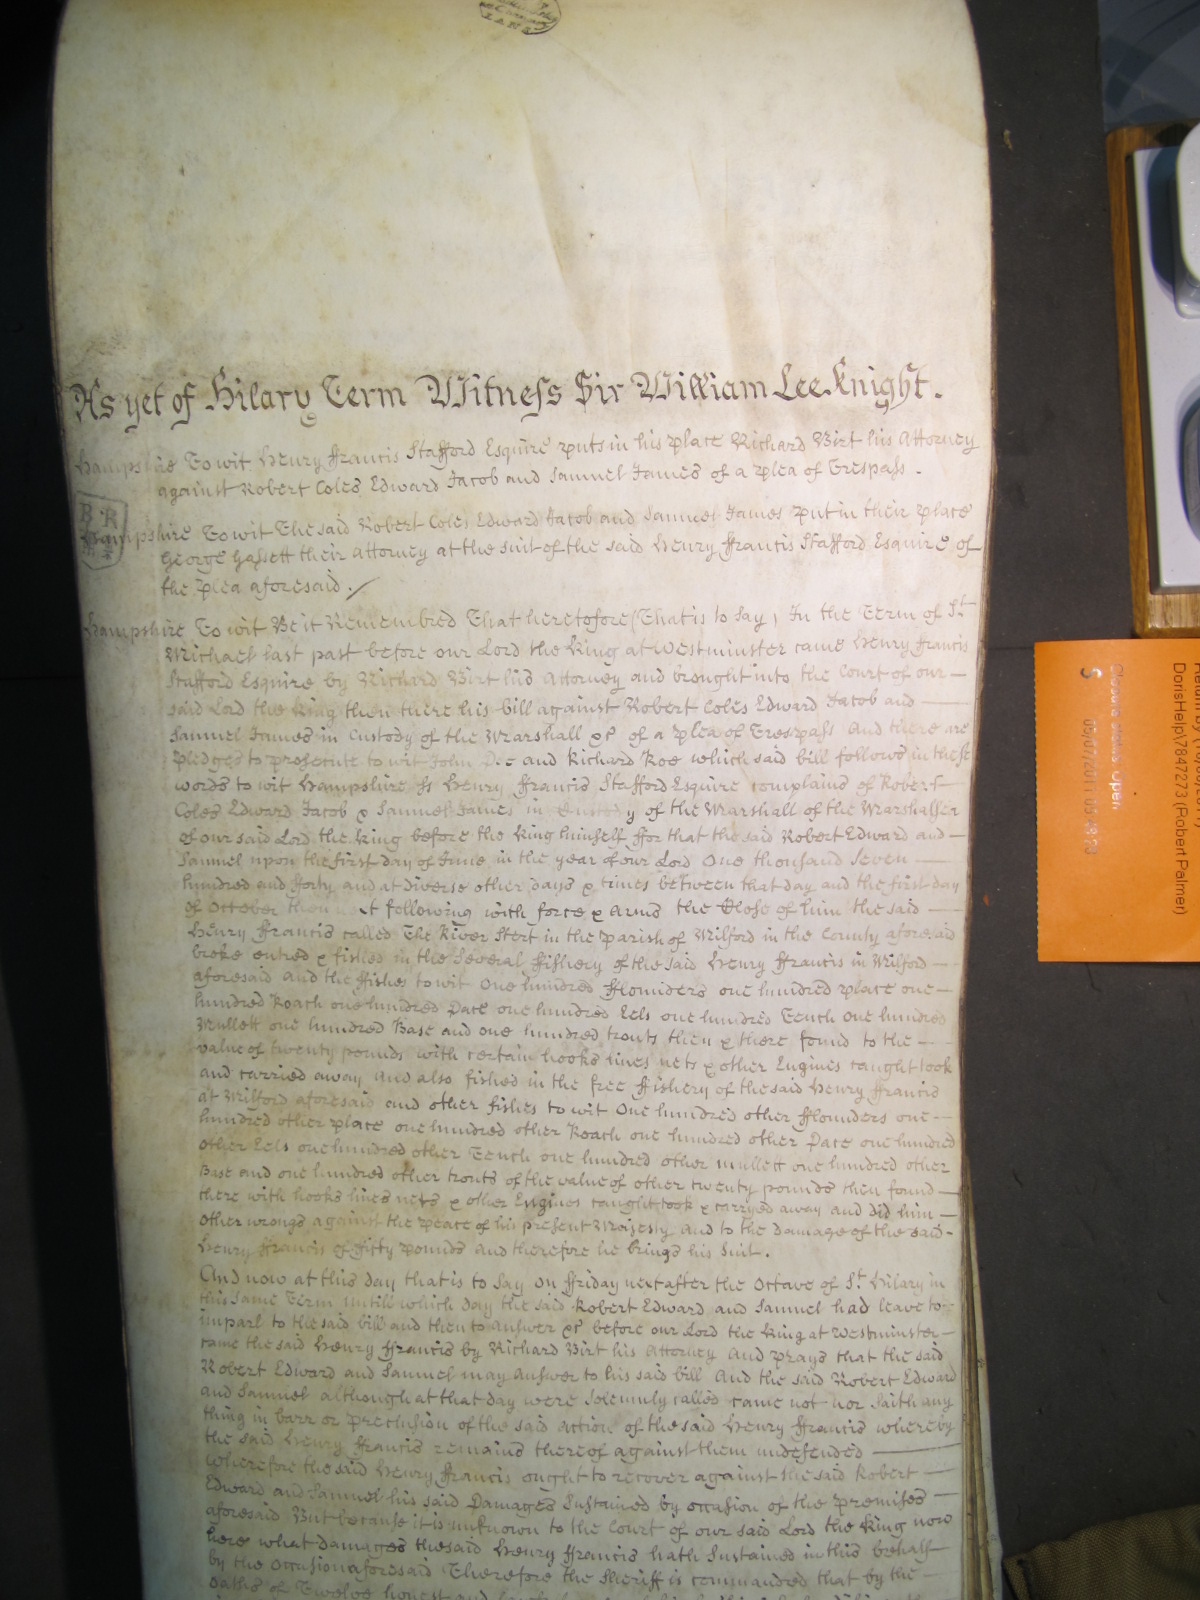 As yet of Hilary Term Witness Sir William Lee Knight.
Hampshire To wit Henry ffrancis Stafford Esquire puts in his place Richard Birt his Attorney
against Robert Coles Edward Jacob and Samuel James of a plea of Trespass.
Hampshire To wit The said Robert Coles Edward Jacob and Samuel James put in their place
George Gassett their Attorney at the suit of the said Henry ffrancis Stafford Esquire of
the plea aforesaid
Hampshire To wit Be it Remembred That heretofore (That is to say) In the Term of St.
Michael last past before our Lord the King at Westminster came Henry ffrancis
Stafford Esquire by Richard Birt his Attorney and brought into the Court of our
said Lord the King then there his bill against Robert Coles Edward Jacob and
Samuel James in Custody of the Marshall &c of a plea of Trespass And there are
pledges to prosecute to wit John Doe and Richard Roe which said bill follows in these
words to wit Hampshire ss Henry ffrancis Stafford Esquire complains of Robert
Coles Edward Jacob & Samuel James in Custody of the Marshall of the Marshalsea
of our said Lord the King before the King himself ffor that the said Robert Edward and
Samuel upon the first day of June in the year of our Lord One thousand Seven
hundred and fforty and at diverse other days & times between that day and the first day
of October then following with force & Arms the Close of him the said
Henry ffrancis called The River Stert in the parish of Milford in the County aforesaid
broke entred & fished in the Several ffishery of the said Henry ffrancis in Milford
aforesaid and the ffishes to wit One hundred fflounders one hundred place one
hundred Roach one hundred Dace one hundred Eels one hundred Tench one hundred
Mullett one hundred Base and one hundred trouts then & there found to the
value of twenty pounds with certain hooks lines nets & other Engines caught took
and carried away And also fished in the free ffishery of the said Henry ffrancis
at Milford aforesaid and other fishes to wit One hundred other fflounders one
hundred other place one hundred other Roach one hundred other Dace one hundred
other Eels one hundred other Tench one hundred other mullett one hundred other
Base and one hundred other trouts of the value of other twenty pounds then found
there with hooks lines nets & other Engines caught took & carryed away and did him
other wrongs against the peace of his present Majesty and to the damage of the said
Henry ffrancis of fifty pounds and therefore he brings his Suit.
And now at this day that is to say on ffriday next after the Octave of St. Hilary in
this same Term untill which day the said Robert Edward and Samuel had leave to
imparl to the said bill and then to answer &c before our Lord the King at Westminster
came the said Henry ffrancis by Richard Birt his Attorney And prays that the said
Robert Edward and Samuel may Answer to his said bill And the said Robert Edward
and Samuel although at that day were Solemnly called came not nor saith any
thing in barr or preclusion of the said action of the said Henry ffrancis whereby
the said Henry ffrancis remains thereof against them undefended
Wherefore the said Henry ffrancis ought to recover against the said Robert
Edward and Samuel his said Damages Sustained by occasion of the premises
aforesaid But because it is unknown to the Court of our said Lord the King now
here what damages the said Henry ffrancis hath Sustained in this behalf
by the Occasion aforesaid Therefore the Sheriff is commanded that by the
oaths of Twelve honest and
DorisHelp\7847273 (Robert Palmer)